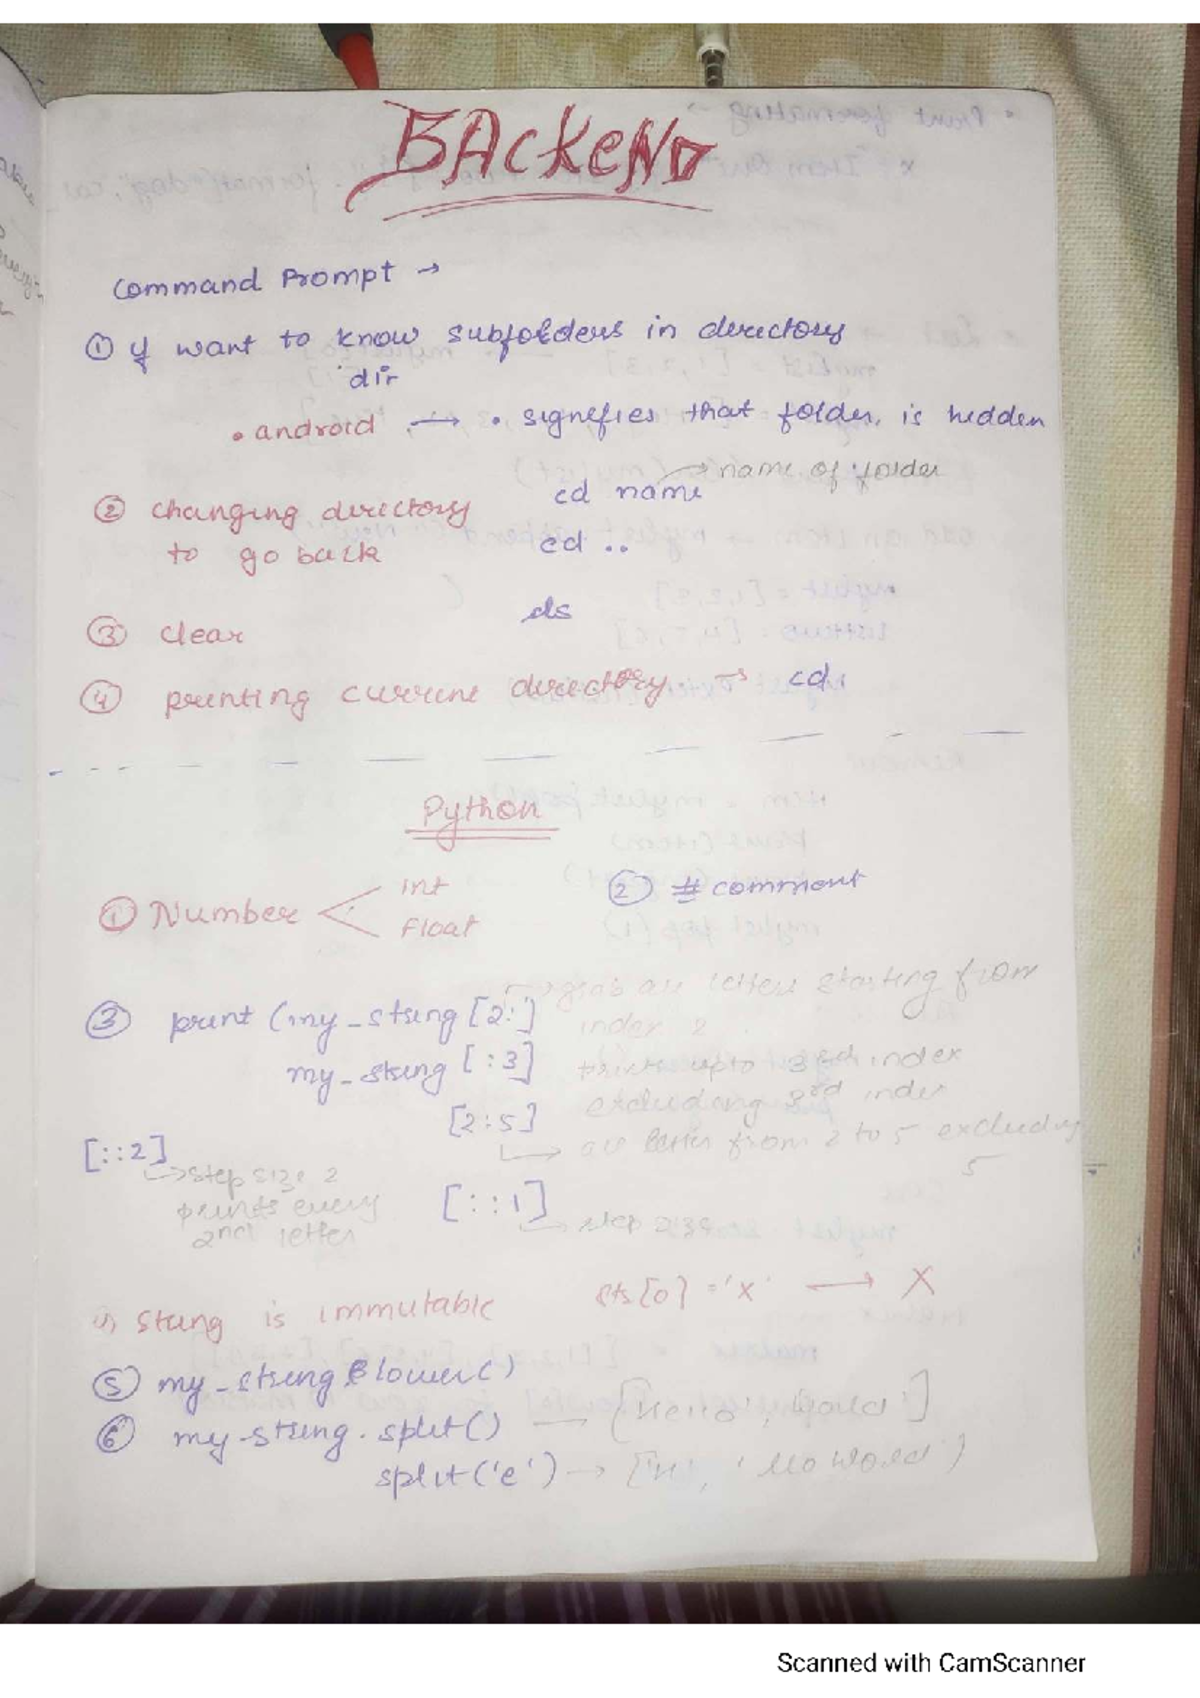 BACKEND
Command Prompt →
① If want to know subfolders in directory
dir
.android → . signefies that folder, is hidden
→ name of folder
② changing directory cd name
to go back cd ..
③ clear cls
④ printing current directory → cd
Python
① Number < int
float
② # comment
→ grab all letters starting from
③ print (my_string [2:] index 2
my_string [:3] prints upto 3rd index
excluding 3rd index
[2:5]
→ all letter from 2 to 5 excluding
5
[::2]
→ step size 2
prints every
2nd letter
[::1]
→ step size
4) String is immutable sts[0] = 'x' → X
⑤ my_string.lower()
⑥ my_string.split() → ['Hello', 'World']
split('e') → ['H', 'llo World']
Scanned with CamScanner